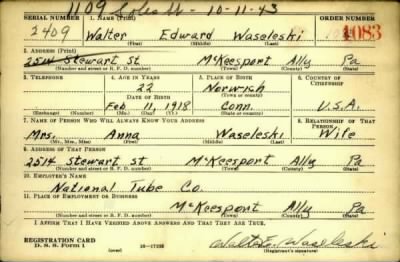 1109 Soles St - 10-11-43
SERIAL NUMBER 1. NAME (Print) ORDER NUMBER
2409 Walter Edward Waseleski 1083
(First) (Middle) (Last)
2. ADDRESS (Print)
2514 Stewart st McKeesport Ally Pa
(Number and street or R. F. D. number) (Town) (County) (State)
3. TELEPHONE 4. AGE IN YEARS 5. PLACE OF BIRTH 6. COUNTRY OF CITIZENSHIP
22 Norwich
DATE OF BIRTH (Town or county)
Feb 11, 1918 Conn. U.S.A.
(Exchange) (Number) (Mo.) (Day) (Yr.) (State or country)
7. NAME OF PERSON WHO WILL ALWAYS KNOW YOUR ADDRESS 8. RELATIONSHIP OF THAT PERSON
Mrs. Anna Waseleski Wife
(Mr., Mrs., Miss) (First) (Middle) (Last)
9. ADDRESS OF THAT PERSON
2514 Stewart st McKeesport Ally Pa
(Number and street or R. F. D. number) (Town) (County) (State)
10. EMPLOYER'S NAME
National Tube Co.
11. PLACE OF EMPLOYMENT OR BUSINESS
McKeesport Ally Pa
(Number and street or R. F. D. number) (Town) (County) (State)
I AFFIRM THAT I HAVE VERIFIED ABOVE ANSWERS AND THAT THEY ARE TRUE.
REGISTRATION CARD
D. S. S. Form 1 Walter E. Waseleski
(Registrant's signature)